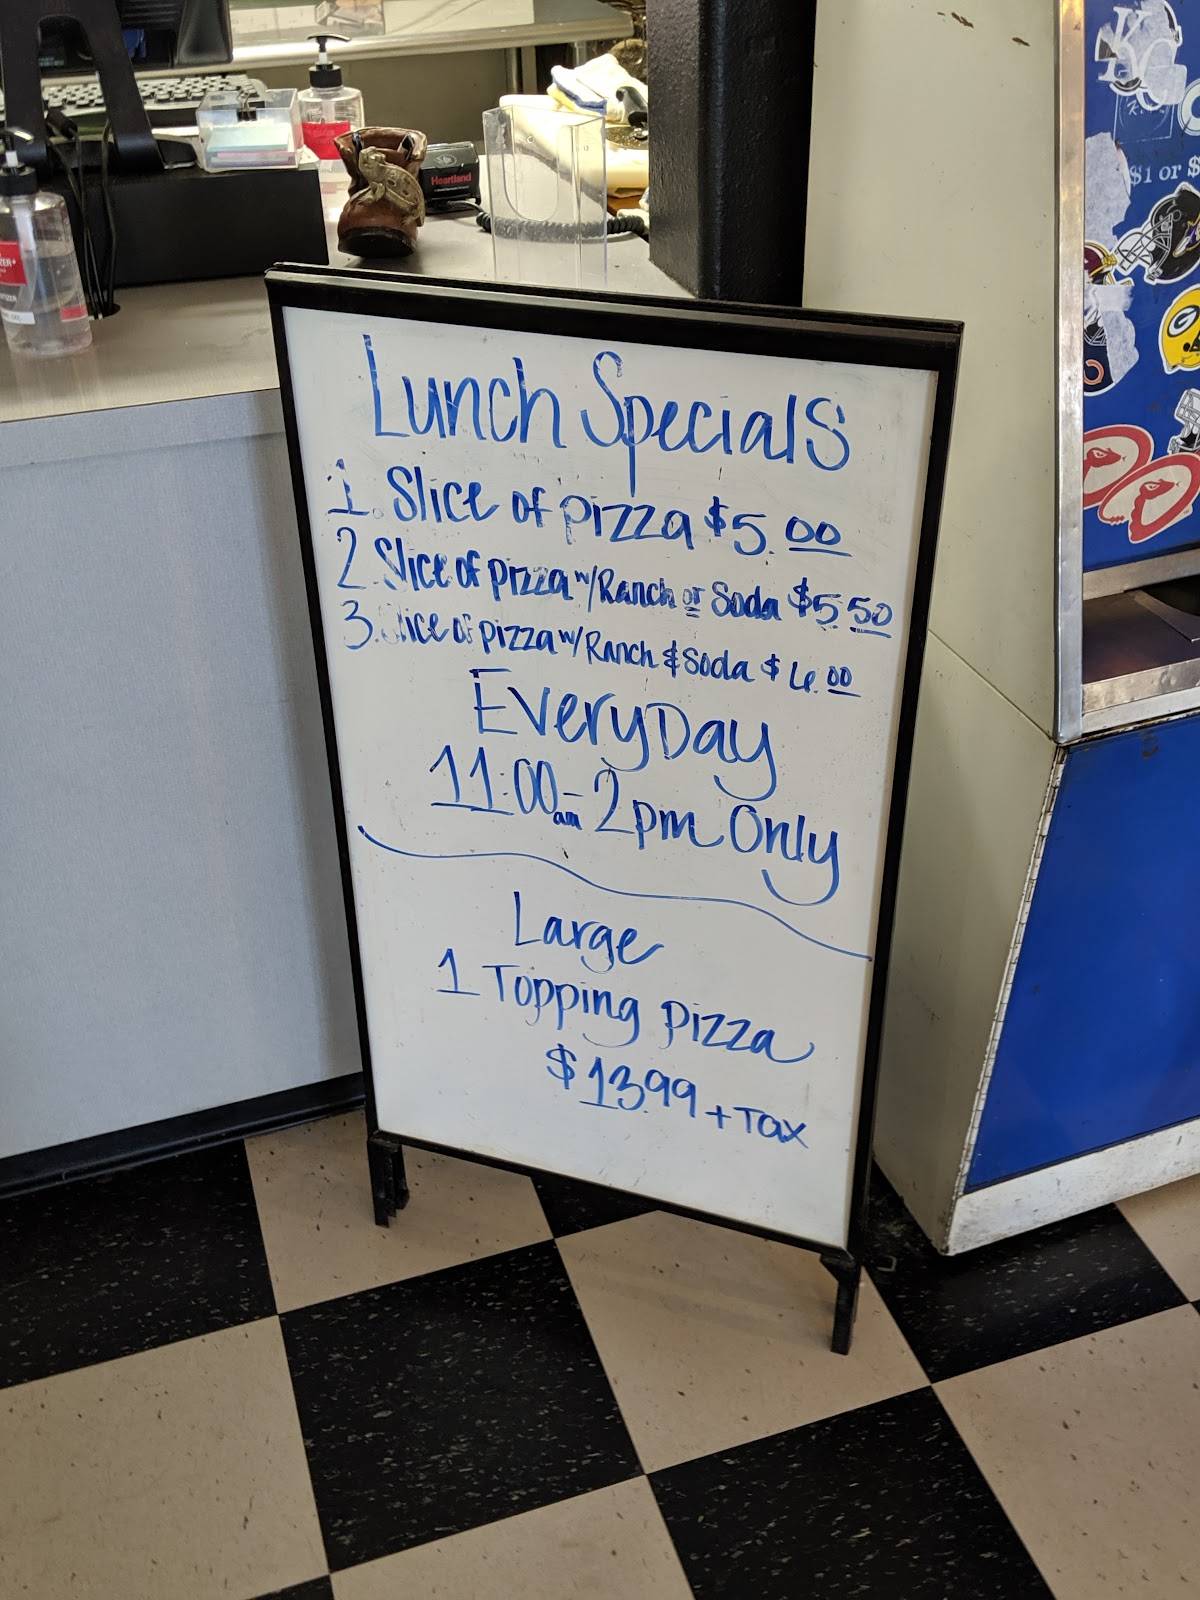 Lunch Specials
1. Slice of pizza $5.00
2. Slice of pizza w/Ranch or Soda $5.50
3. Slice of pizza w/Ranch & Soda $6.00
EveryDay
11:00am - 2pm Only
Large
1 Topping pizza
$13.99 + Tax
Heartland
KC
$1 or $
G